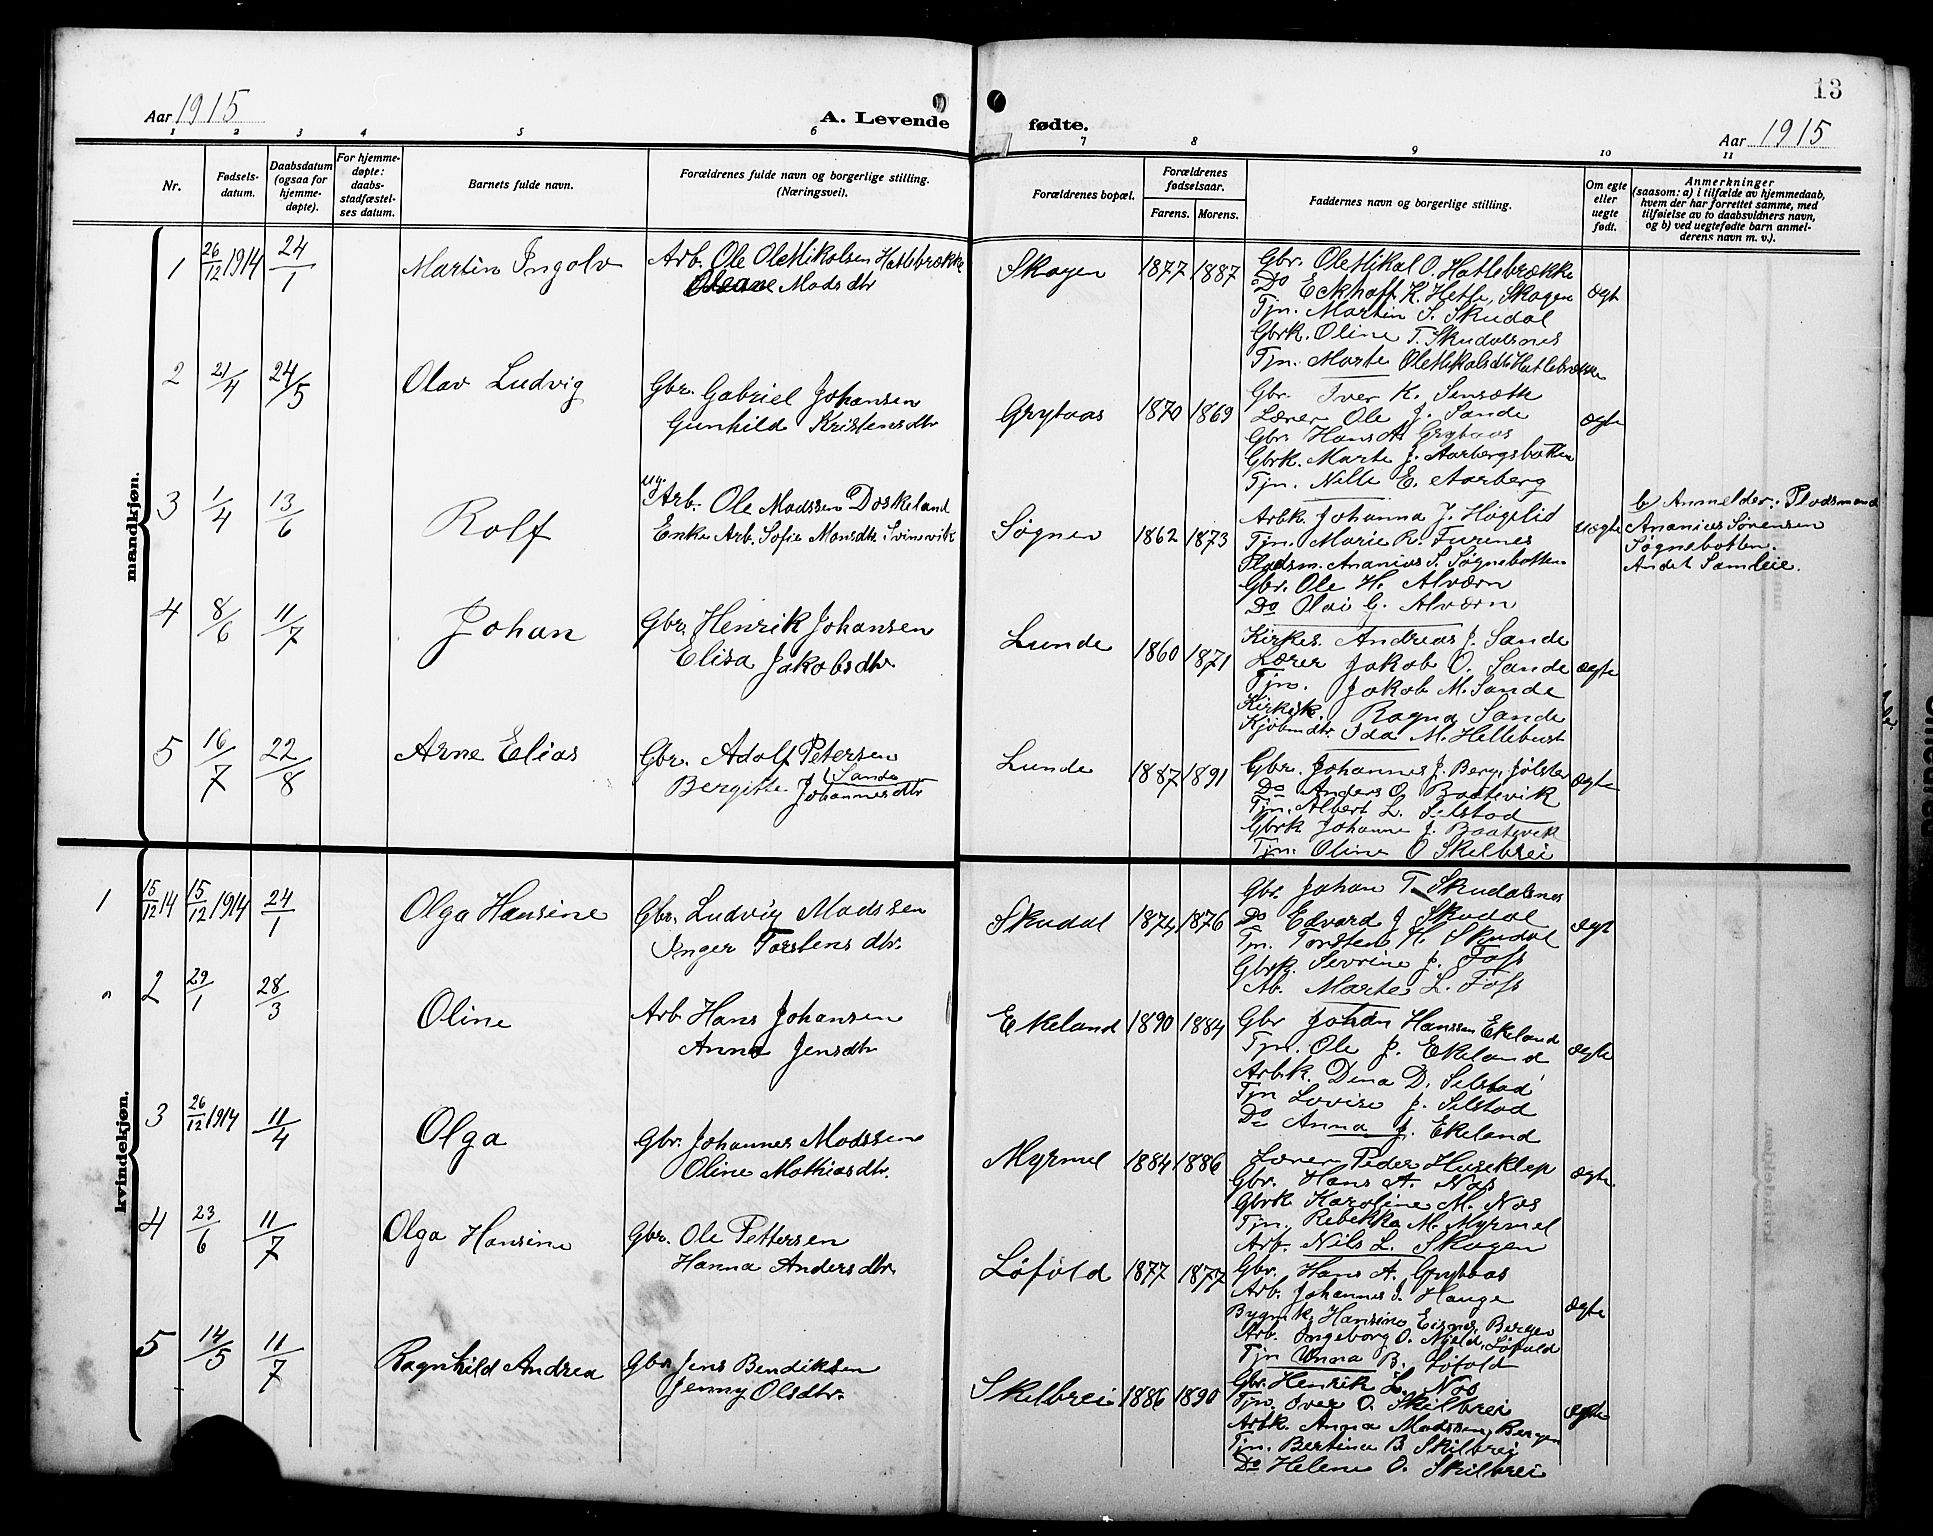 13
Aar 1915
A. Levende
fødte.
Aar 1915
1 2 3 4 5 6 7 8 9 10 11
Nr.
Fødsels-
datum.
Daabsdatum
(ogsaa for
hjemme-
døpte).
For hjemme-
døpte:
daabs-
stadfæstel-
ses datum.
Barnets fulde navn.
Forældrenes fulde navn og borgerlige stilling.
(Næringsvei).
Forældrenes bopæl.
Forældrenes
fødselsaar.
Farens. Morens.
Faddernes navn og borgerlige stilling.
Om egte
eller
uegte
født.
Anmerkninger
(saasom: a) i tilfælde av hjemmedaab,
hvem der har forrettet samme, med
tilføielse av to daabsvidners navn,
og b) ved uegtefødte barn anmel-
derens navn m. v.).
mandkjøn.
1 26/12 1914 24/1 Martin Ingolv
Arb. Ole OleMikalsen Hatlebrække
Oleane Mads dtr
Skogen 1877 1887
Gbr. OleMikal O. Hatlebrække
Do Eckhoff K. Hetle, Skogen
Tjn. Martin S. Skudal
Gbrk. Oline T. Skudalsnes
Tjn. Marte OleMikalsdtr Hatlebrække
ægt
2 21/4 24/5 Olav Ludvig
Gbr. Gabriel Johansen
Gunhild Kristensdtr
Grytaas 1870 1869
Gbr. Iver K. Sensætte
Lærer Ole J. Sande
Gbr. Hans A. Grytaas
Gbrk. Marte J. Aarbergsbotten
Tjn. Nille E. Aarberg
ægte
3 1/4 13/6 Rolf
ug. Arb. Ole Madssen Doskeland
Enke Arb. Sofie Monsdtr. Svinevik
Søgnen 1862 1873
Arbk. Johanna J. Høgelid
Tjn. Marie R. Furenes
Pladsm. Ananias S. Søgnebotten
Gbr. Ole H. Alværn
Do Olai G. Alværn
uegte
b) Anmelder: Pladsmand
Ananias Sørensen
Søgnebotten.
Andet Samleie.
4 8/6 11/7 Johan
Gbr. Henrik Johansen
Elisa Jakobsdtr
Lunde 1860 1871
Kirkes. Andreas J. Sande
Lærer Jakob O. Sande
Tjn. Jakob M. Sande
Kirkesk. Ragna Sande
Kjøbmdtr Ida M. Hellebust
ægte
5 16/7 22/8 Arne Elias
Gbr. Adolf Petersen
Sande
Bergitte Johannesdtr
Lunde 1887 1891
Gbr. Johannes J. Berg, Jølster
Do Anders O. Baatevik
Tjn. Albert L. Selstad
Gbrk Johanne J. Baatevik
Tjn. Oline O Skilbrei
ægte
kvindekjøn.
1 15/12 14 15/12 1914 24/1 Olga Hansine
Gbr. Ludvig Madssen
Inger Torstens dtr.
Skudal 1874 1876
Gbr. Johan T. Skudalsnes
Do Edvard J Skudal
Tjn. Torsten H. Skudal
Gbrk. Sevrine J. Foss
Ab. Marte L. Foss
ægt
2 29/1 28/3 Oline
Arb. Hans Johansen
Anna Jensdtr
Ekeland 1890 1884
Gbr Johan Hanssen Ekeland
Tjn. Ole J. Ekeland
Arbk. Dina D. Selstad
Tjn Lovise J. Selstad
Do Anna J. Ekeland
ægte
3 26/12 1914 11/4 Olga
Gbr. Johannes Madssen
Oline Mathiasdtr.
Myrmel 1884 1886
Lærer Peder Huseklep
Gbr. Hans A. Nos
Gbrk Karoline M. Nos
Tjn. Rebekka M. Myrmel
Arb. Nils L. Skogen
ægte
4 23/6 11/7 Olga Hansine
Gbr. Ole Pettersen
Hanna Anders dtr.
Løfold 1877 1877
Gbr. Hans A. Grytaas
Arb. Johannes J. Hauge
Bygm.k. Hansine Eisnes, Bergen
Arb. Ingeborg O. Njeld, Løfold
Tjn Unna B. Løfold
ægte
5 14/5 11/7 Ragnhild Andrea
Gbr Jens Bendiksen
Jenny Olsdtr.
Skilbrei 1886 1890
Gbr. Henrik L. Nos
Tjn. Over O. Skilbrei
Arbk. Anna Madssen, Bergen
Tjn. Bertina B. Skilbrei
Do Helene O. Skilbrei
ægte